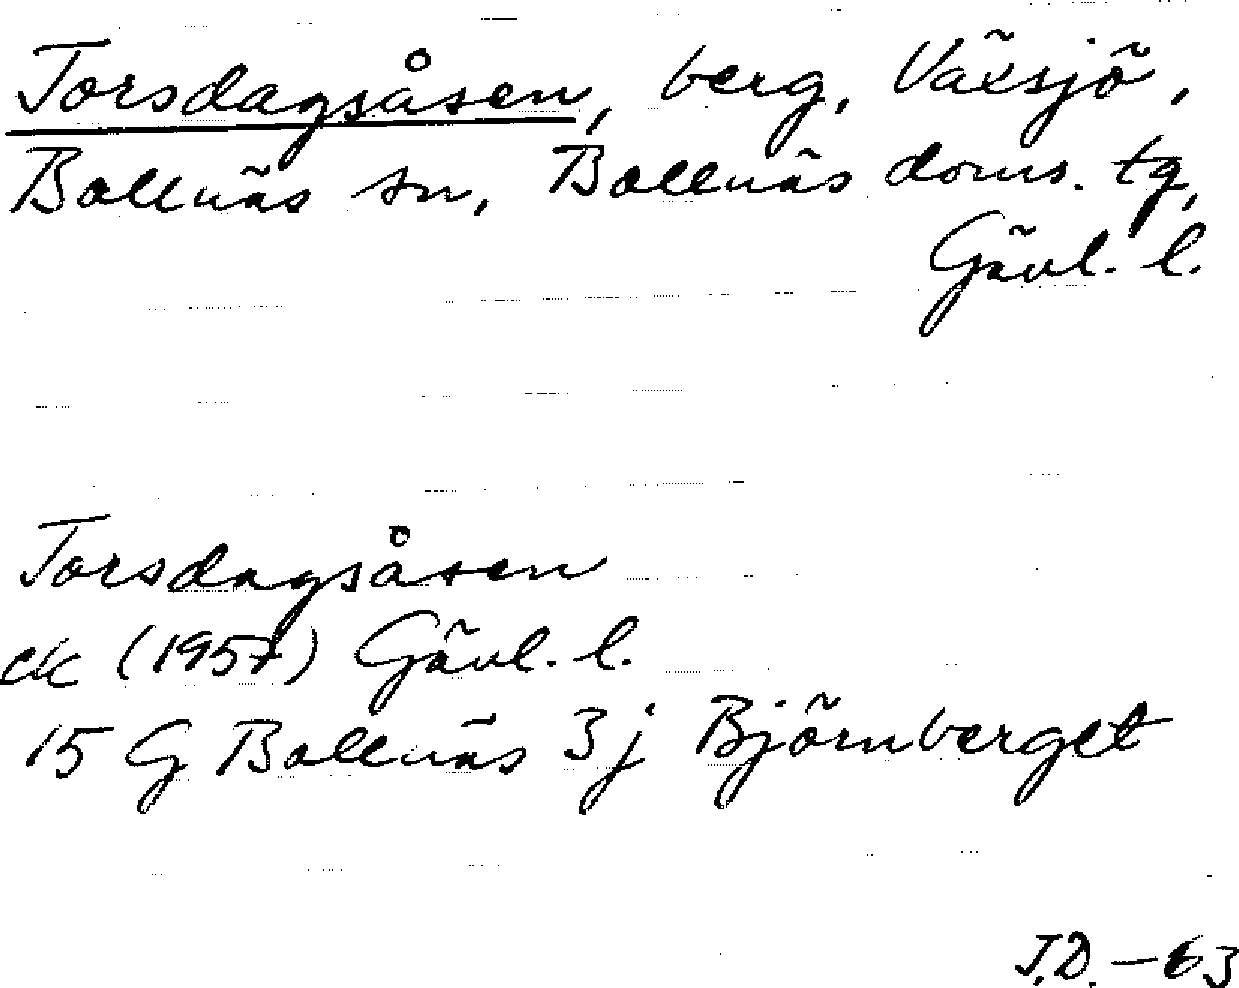 Torsdagsåsen, berg, Växsjö,
Bollnäs sn, Bollnäs doms. tg,
Gävl. l.
Torsdagsåsen
ek (1957) Gävl. l.
15 G Bollnäs 3j Björnberget
J.D. – 63